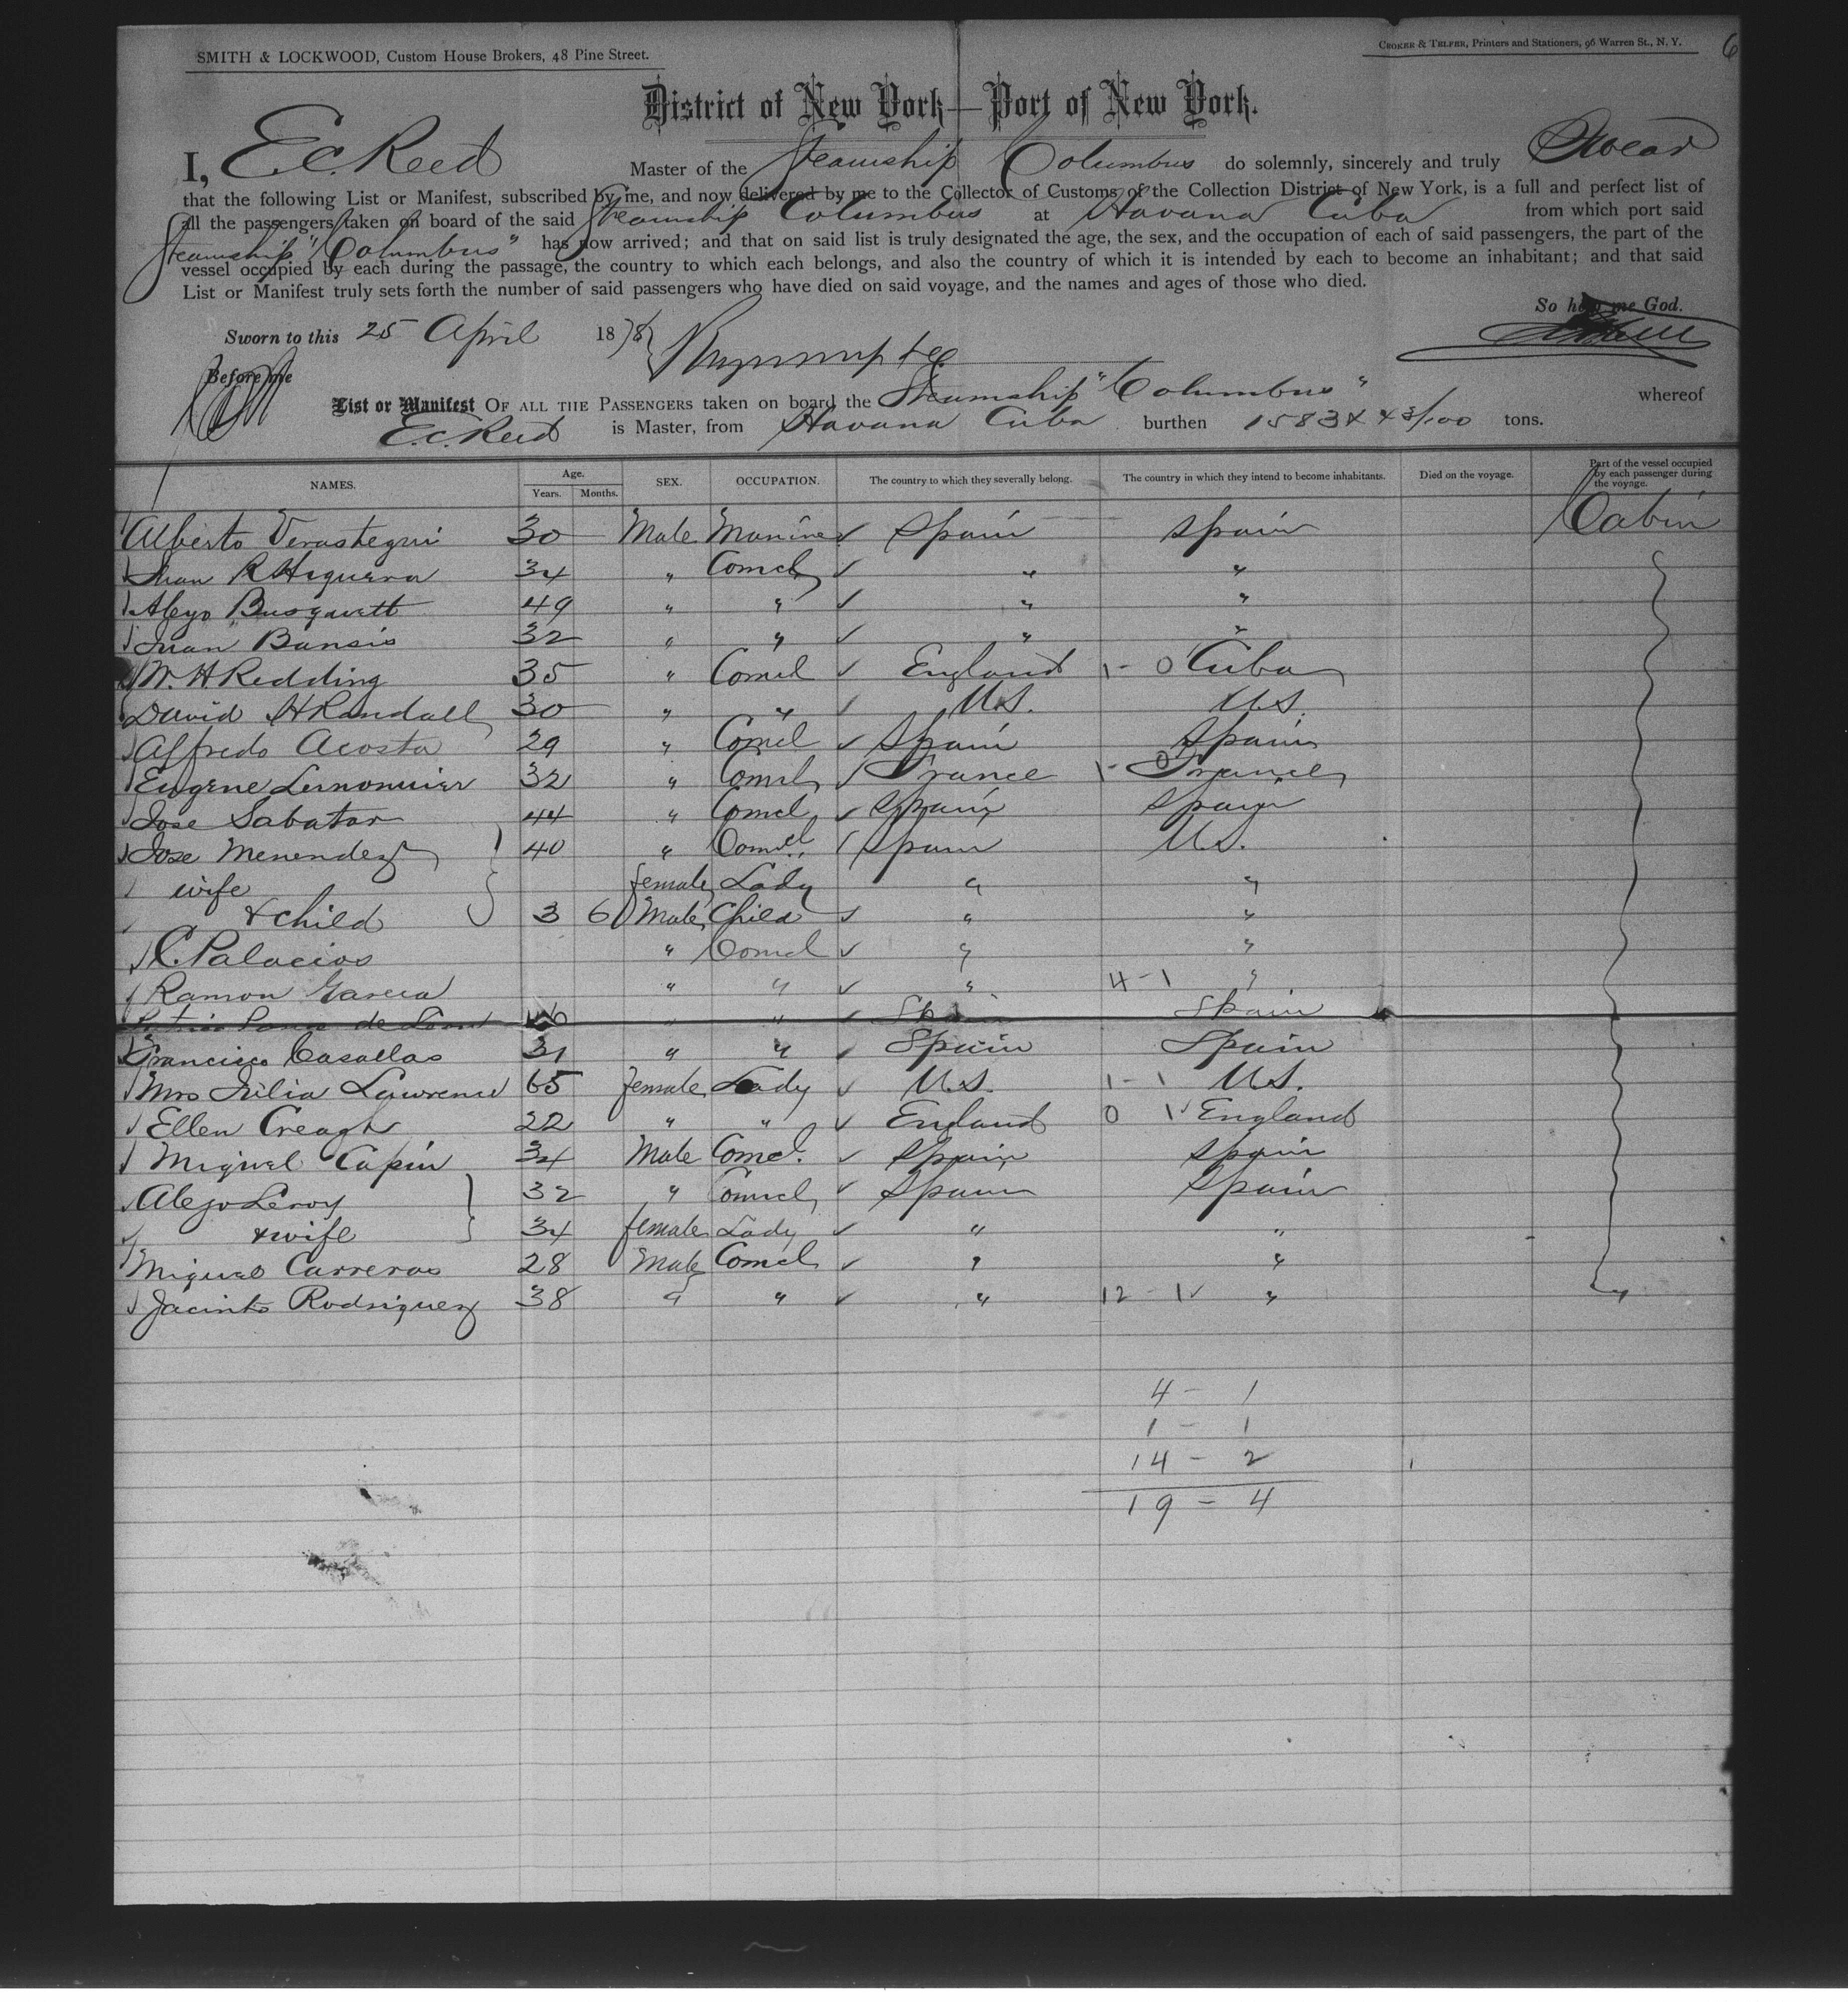 SMITH & LOCKWOOD, Custom House Brokers, 48 Pine Street.
CROKER & TELFER, Printers and Stationers, 96 Warren St., N. Y.
6
District of New York—Port of New York.
I, E.C. Reed Master of the Steamship Columbus do solemnly, sincerely and truly Swear
that the following List or Manifest, subscribed by me, and now delivered by me to the Collector of Customs of the Collection District of New York, is a full and perfect list of
all the passengers taken on board of the said Steamship Columbus at Havana Cuba from which port said
Steamship "Columbus" has now arrived; and that on said list is truly designated the age, the sex, and the occupation of each of said passengers, the part of the
vessel occupied by each during the passage, the country to which each belongs, and also the country of which it is intended by each to become an inhabitant; and that said
List or Manifest truly sets forth the number of said passengers who have died on said voyage, and the names and ages of those who died.
So help me God.
Sworn to this 25 April 1878
Before me
List or Manifest OF ALL THE PASSENGERS taken on board the Steamship "Columbus" whereof
E.C. Reed is Master, from Havana Cuba burthen 1583 & 43/100 tons.
NAMES. Age. Years. Months. SEX. OCCUPATION. The country to which they severally belong. The country in which they intend to become inhabitants. Died on the voyage. Part of the vessel occupied by each passenger during the voyage.
Alberto Verastegui 30 Male Marine ✓ Spain Spain Cabin
Juan R Higuera 34 " Comcl ✓ " "
Aleyo Busquett 49 " " ✓ " "
Juan Bansis 32 " " ✓ " "
W. H Redding 35 " Comcl ✓ England 1 - 0 Cuba
David H Randall 30 " " ✓ U.S. U.S.
Alfredo Acosta 29 " Comcl ✓ Spain Spain
Eugene Lemonnier 32 " Comcl ✓ France 1 - 0 France
Jose Sabater 44 " Comcl ✓ Spain Spain
Jose Menendez 40 " Comcl Spain U.S.
wife female Lady " "
& child 3 6 Male Child ✓ " "
C. Palacios " Comcl ✓ " "
Ramon Garcia " " ✓ " 4 - 1 "
Ponce de Leon 46 " " ✓ Spain Spain
Francisco Casallas 31 " " ✓ Spain Spain
Mrs Julia Lawrence 65 female Lady ✓ U.S. 1 - 1 U.S.
Ellen Creagh 22 " " ✓ England 0 1 ✓ England
Miguel Capin 34 Male Comcl. ✓ Spain Spain
Alejo Leroy 32 " Comcl ✓ Spain Spain
& wife 34 female Lady ✓ " "
Miguel Carreras 28 Male Comcl ✓ " "
Jacinto Rodriguez 38 " " ✓ " 12 - 1 ✓ " "
4 - 1
1 - 1
14 - 2
19 - 4